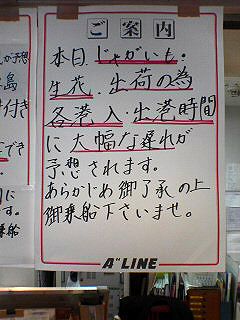 ご案内
本日.じゃがいも・
生花.出荷の為
各港入.出港時間
に大幅な遅れが
予想されます。
あらかじめ御了承の上
御乗船下さいませ。
A"LINE